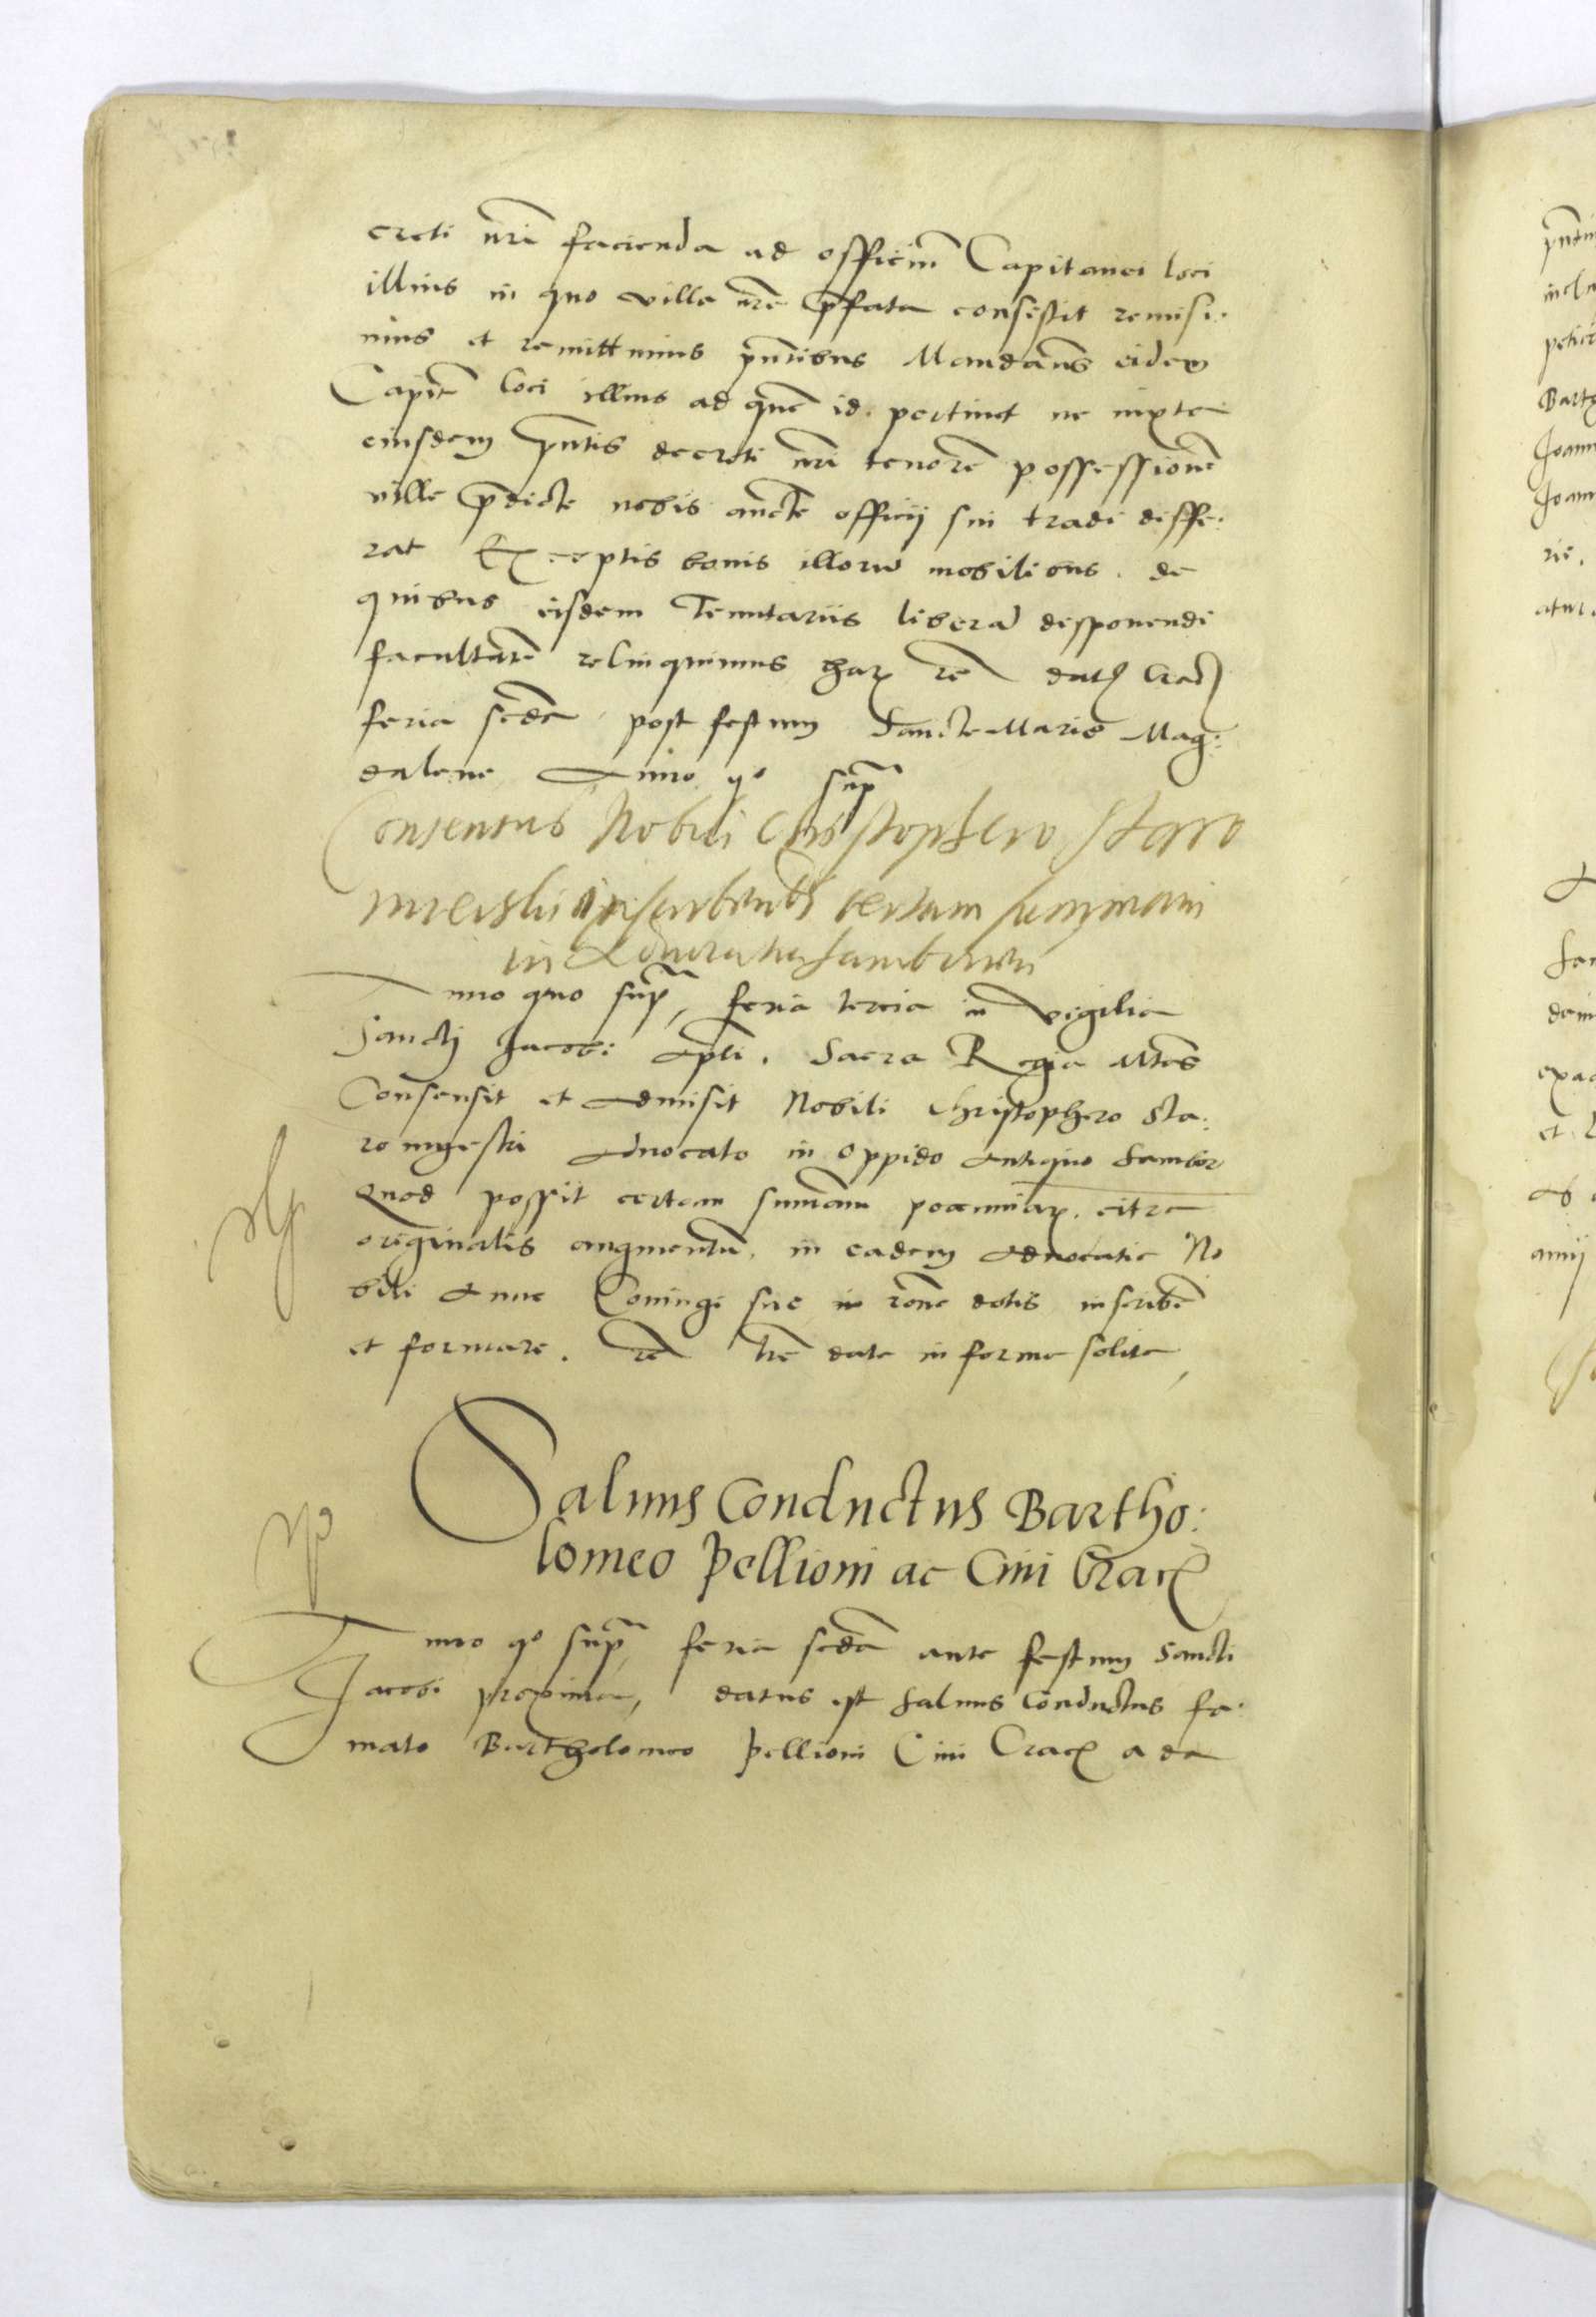 creti nr̃i facienda ad officiũ Capitanei loci
illius in quo villa nr̃a p̃fata consistit remisi.
mus et remittimus p̃ntibus Mandan̄s eidem
Capit̃ loci illius ad quẽ id pertinet ne iuxta
eiusdem p̃ntis decreti nr̃i tenorẽ possessionẽ
ville p̃dicte nobis auctẽ officij sui tradi diffe:
rat Exceptis bonis illorũ mobilibus. de
quibus eisdem Tenutariis liberã disponendi
facultatẽ relinquimus har̃ rẽ dat̃ Crac̃
feria sc̃da post festum Sancte Marie Mag:
dalene Anno q° sup̃
Consensus Nobili Christophero Staro
mieiski inscribendi certam summam
in Advocatia Samborien
Anno quo sup̃, feria tercia in vigilia
Sancti Jacobi Apl̃i. Sacra Regia Mtãs
Consensit et admisit Nobili Christophero Sta:
romyeski advocato in oppido antiquo Sambor
Quod possit certam summam pecuniar̃. citra
originalis augmentũ. in eadem advocatia No
bili Anne Coniugi sue in rõne dotis inscribẽ
et formare. rẽ lr̃e date in forma solita,
Saluus Conductus Bartho:
lomeo Pellioni ac Ciui Crac̃
Anno q° sup̃ feria sc̃da ante festum Sancti
Jacobi proxima, datus est Saluus Conductus fa:
mato Bartholomeo Pellioni Ciui Crac̃ a da